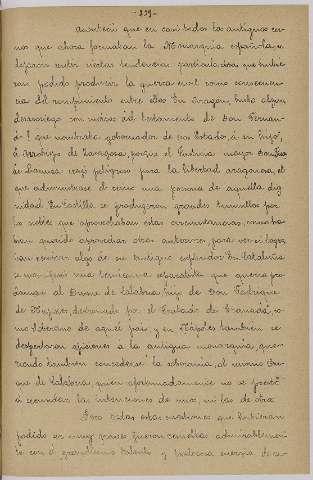 - 229 -
Aconteció que en casi todos los antiguos rei-
nos que ahora formaban la Monarquía española, se
dejaron sentir ciertas tendencias particularistas que hubie-
ran podido producir la guerra civil como consecuen-
cia del rompimiento entre ellos. En Aragón, hubo algun
desasosiego con motivo del testamento de Don Fernan-
do I que nombraba gobernador de ese Estado, á su hijo,
el Arzobispo de Zaragoza, porque el Justicia mayor
Lanuza creyó peligroso para la libertad aragonesa, el
que administrase el reino una persona de aquella dig-
nidad. En Castilla se produjeron grandes tumultos por
los nobles que aprovechaban estas circunstancias, como ha-
bían querido aprovechar otras anteriores para ver si logra-
ban revivir algo de su antiguo esplendor. En Cataluña
se manifestó una tendencia separatista que quería pro-
clamar al Duque de Calabria, hijo de Don Fadrique
de Nápoles, destronado por el Tratado de Granada, co-
mo Soberano de aquel país y en Nápoles tambien se
despertaron aficiones á la antigua monarquía, que-
riendo tambien concederse la soberanía, al mismo Du-
que de Calabria, quien afortunadamente no se prestó
á secundar las intenciones de unos, ni las de otros.
Pero todas estas cuestiones que hubieran
podido ser muy graves fueron vencidas admirablemen-
te con el grandísimo talento y poderosa energía de